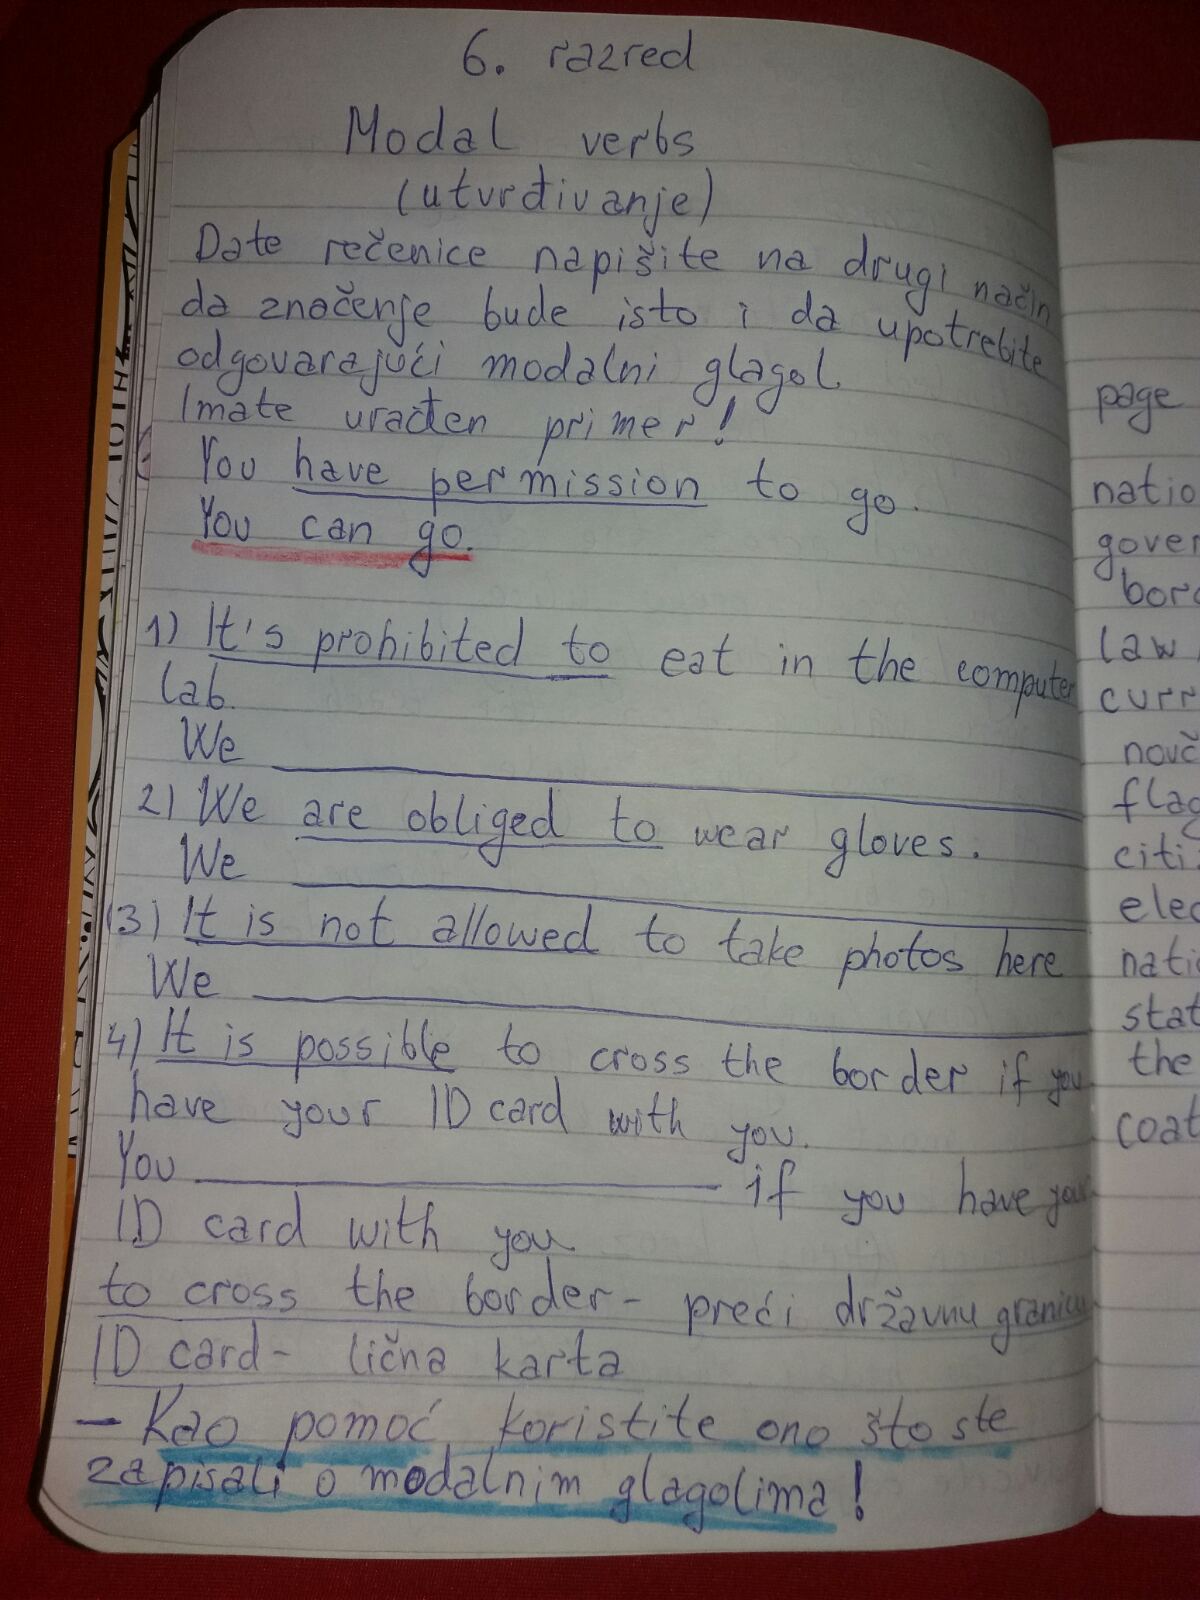 6. razred
Modal verbs
(utvrđivanje)
Date rečenice napišite na drugi način
da značenje bude isto i da upotrebite
odgovarajući modalni glagol.
Imate urađen primer!
You have permission to go.
You can go.
1) It's prohibited to eat in the computer
lab.
We
2) We are obliged to wear gloves.
We
3) It is not allowed to take photos here
We
4) It is possible to cross the border if you
have your ID card with you.
You if you have your
ID card with you
to cross the border - preći državnu granicu
ID card - lična karta
- Kao pomoć koristite ono što ste
zapisali o modalnim glagolima!
page
natio
gover
bord
law
curr
novč
flag
citi
elec
natio
stat
the
coat